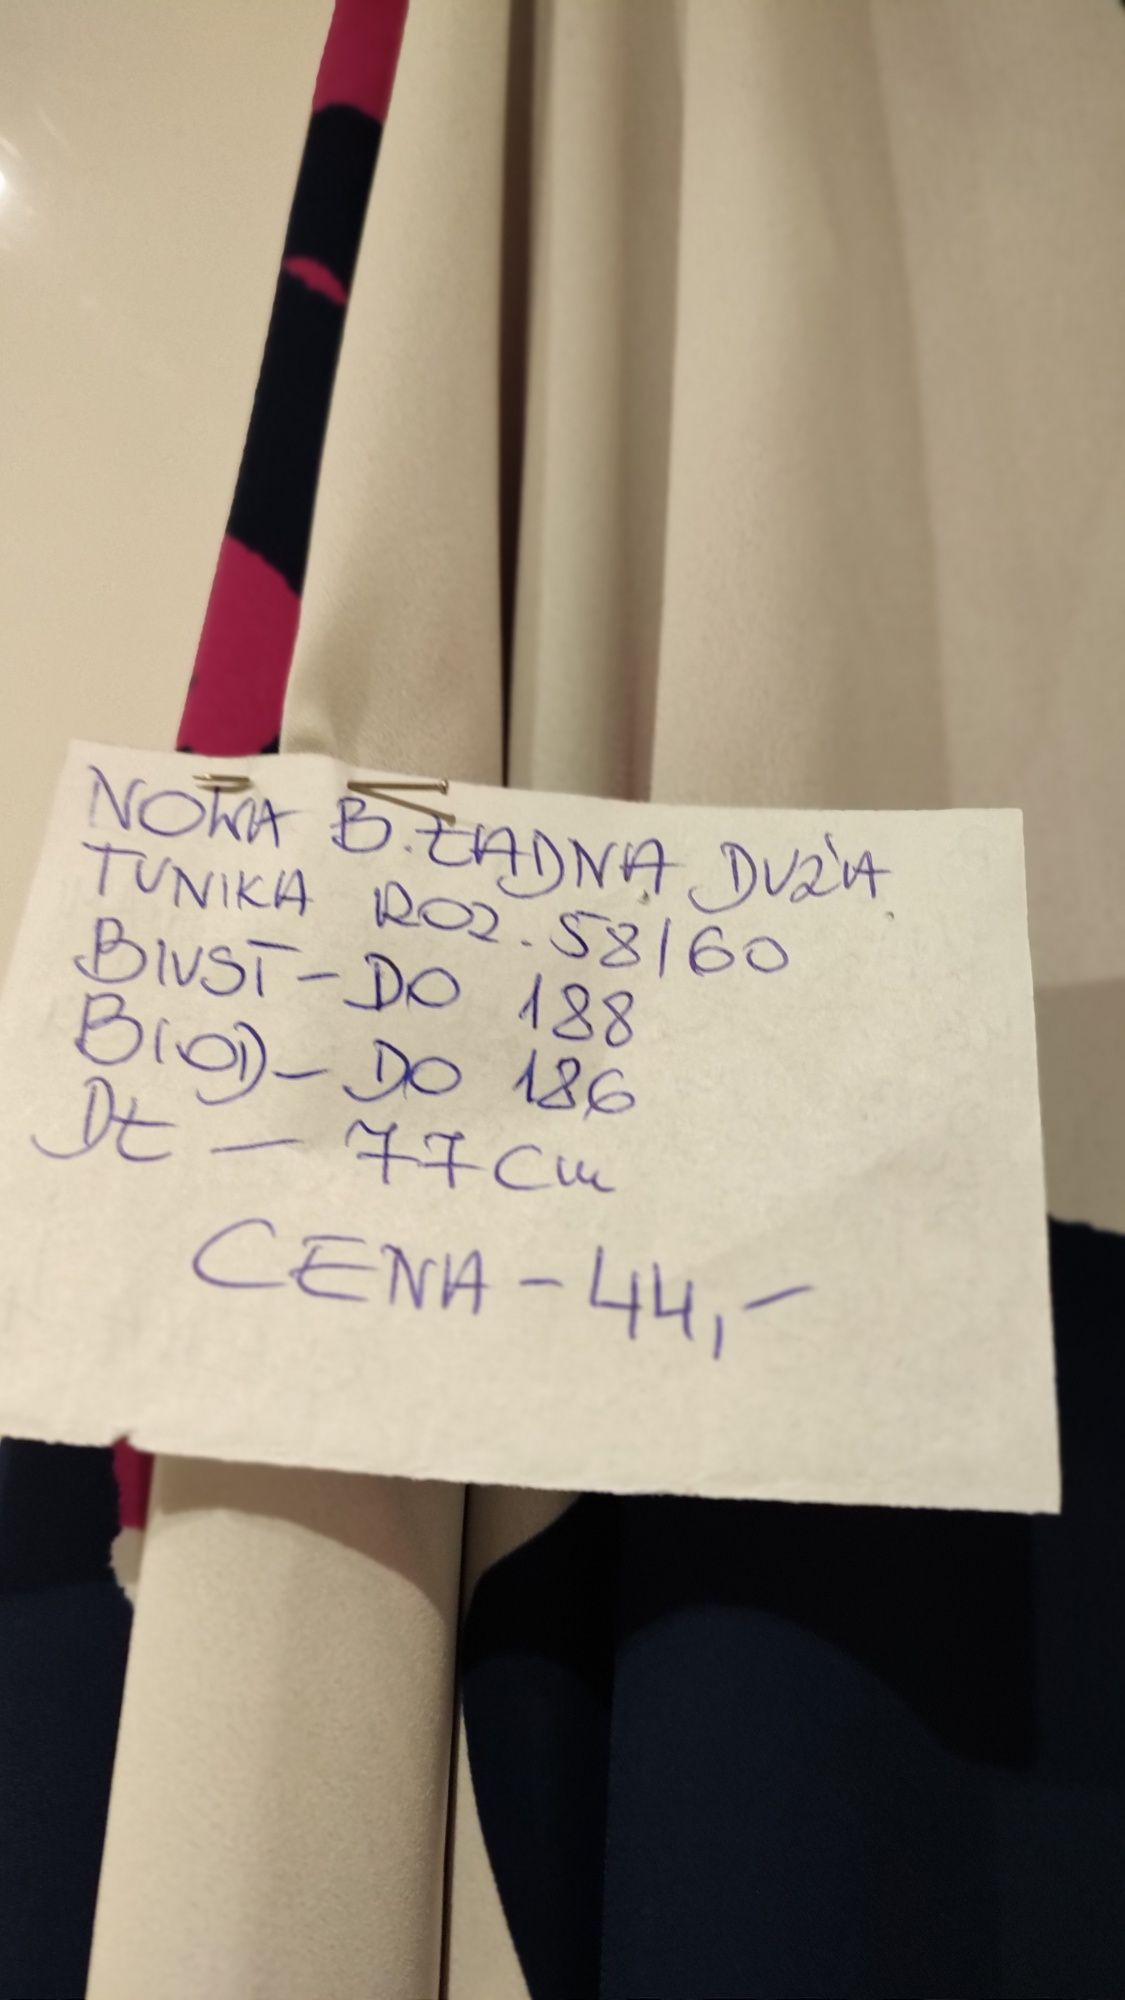 NOWA B. ŁADNA DUŻA
TUNIKA ROZ. 58/60
BIUST - DO 188
BIOD - DO 186
DŁ - 77 cm
CENA - 44,-